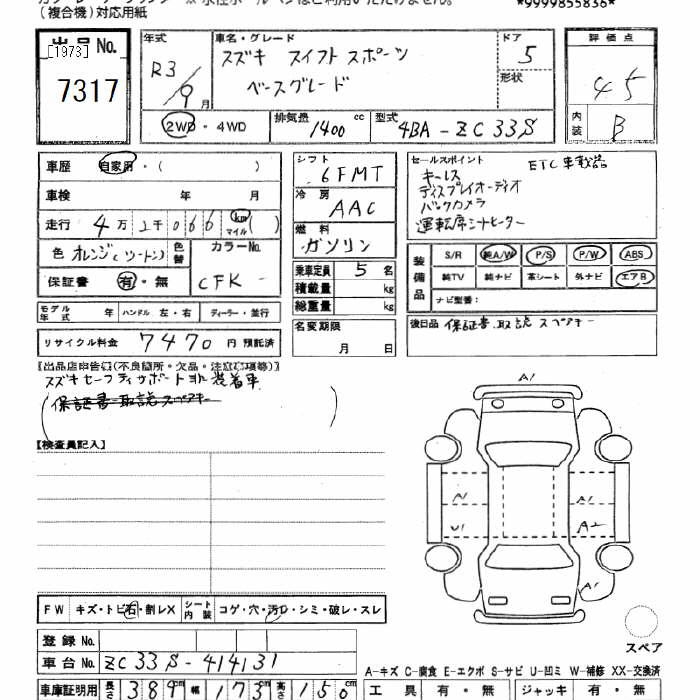 (複合機)対応用紙
*9999855836*
出品No.
[1973]
7317
年式
R3/9月
車名・グレード
スズキ スイフト スポーツ
ベースグレード
ドア
5
形状
評価点
4 5
内装
B
2WD・4WD
排気量 1400 cc
型式 4BA-ZC33S
車歴 自家用・( )
車検 年 月
走行 4万 1千 0 6 6 km マイル ( )
色 オレンジ(ツートン) 色替
カラーNo.
CFK -
保証書 有・無
モデル年式 年 ハンドル 左・右 ディーラー・並行
リサイクル料金 7470 円 預託済
シフト
6FMT
冷房
AAC
燃料
ガソリン
乗車定員 5 名
積載量 kg
総重量 kg
名変期限
月 日
セールスポイント
ETC車載器
キーレス
ディスプレイオーディオ
バックカメラ
運転席シートヒーター
装備品
S/R 純A/W P/S P/W ABS
純TV 純ナビ 革シート 外ナビ エアB
ナビ型番:
後日品 保証書、取説 スペアキー
【出品店申告欄(不良箇所・欠品・注意事項等)】
スズキセーフティサポート 装着車
(保証書 取説 スペアキー)
【検査員記入】
A1
A2
A1
U1
FW キズ・トビ石・割レX シート内装 コゲ・穴・汚レ・シミ・破レ・スレ
登録No.
車台No. ZC33S-414131
車庫証明用 長さ 389cm 幅 173cm 高さ 150cm
スペア
A-キズ C-腐食 E-エクボ S-サビ U-凹ミ W-補修 XX-交換済
工具 有・無 ジャッキ 有・無